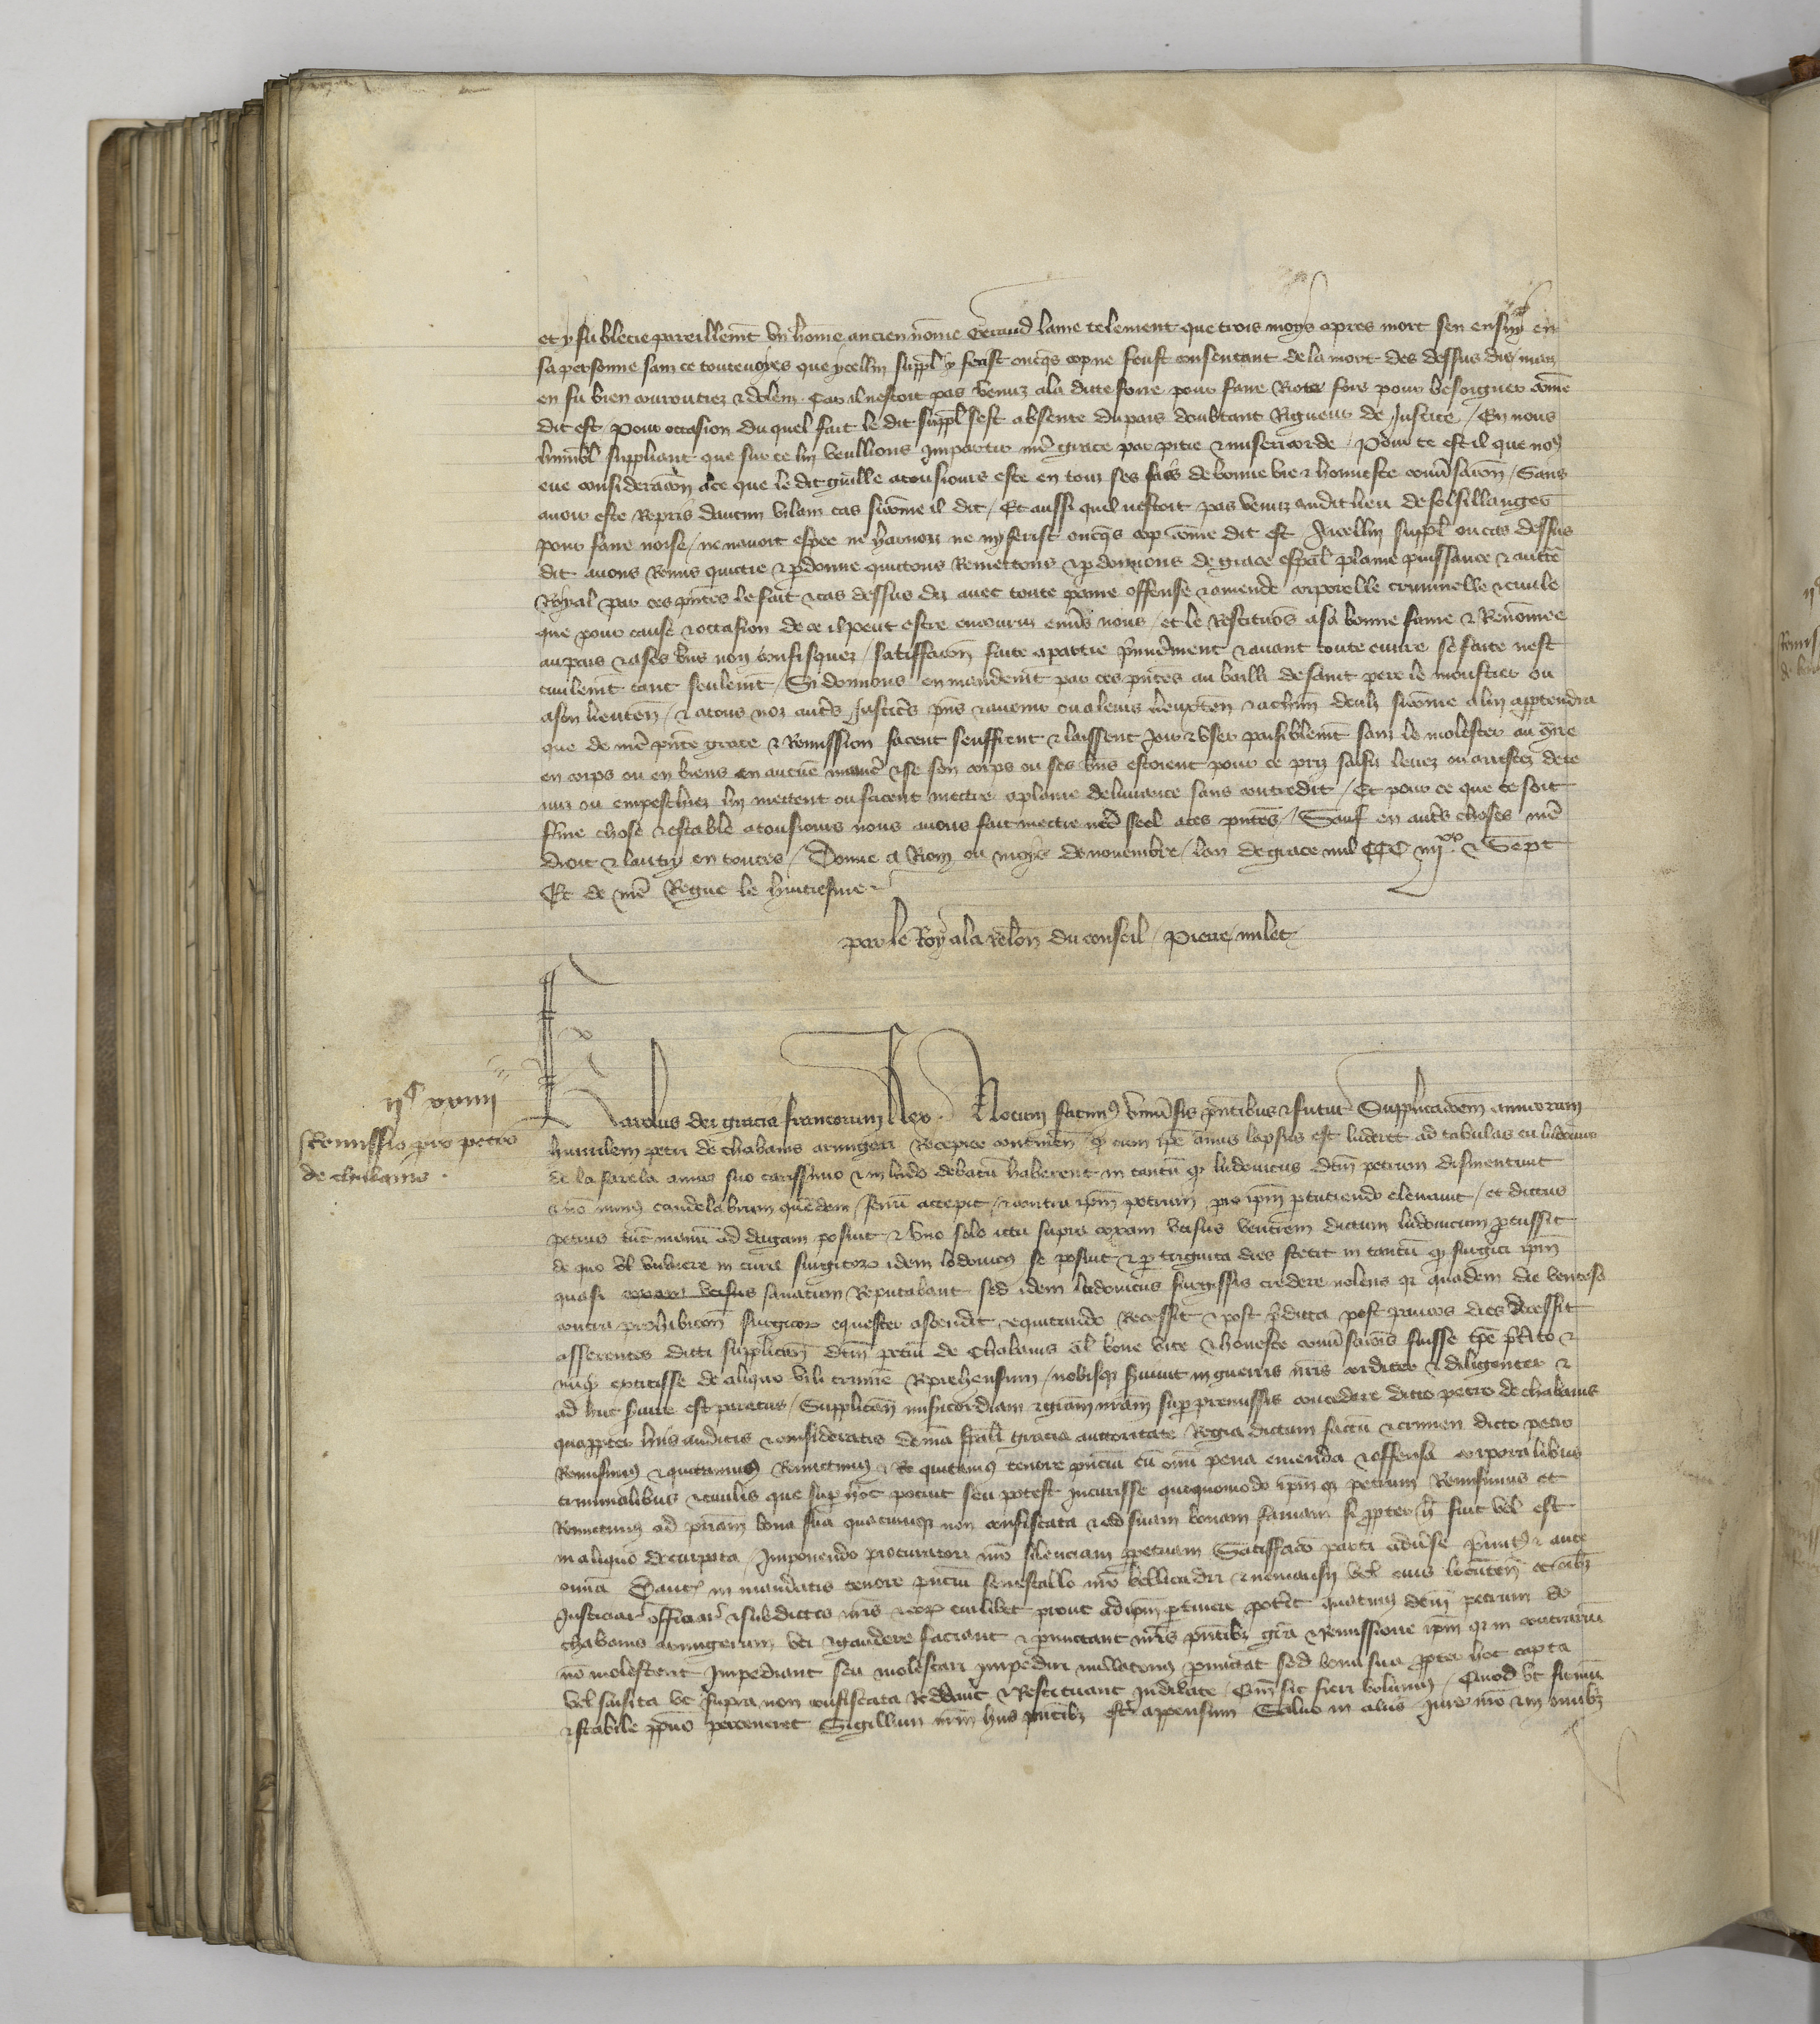 et y fu blecie pareillemt un homme ancien nomme Geraud lame telement que trois moys apres mort sen ensuy en
sa personne sans ce toutevoyes que ycellui suppl y ferist oncqs cop ne feust consentant de la mort des dessus diz mais
en fu bien courouciez & dolent Car il nestoit pas venuz ala dicte foire pour faire Riote fors pour besoigner come
dit est Pour occasion du quel fait le dit suppl sest absente du pais doubtant Rigueur de Justice / En nous
humbl suppliant que sur ce lui veullions Impartir nre grace par pitie & misericorde / Pour ce est il que nos
eue consideracon ace que le dit guille atousiours este en touz ses faiz de bonne vie & honneste conversacon / Sans
avoir este Repris daucun vilain cas si come il dit / Et aussi quil nestoit pas venuz audit lieu de solsillanges
pour faire noise / ne navoit espee ne harnois ne ny ferist oncqs cop come dit est Aicellui suppl ou cas dessus
dit avons Remis quictie & pdonne quictons Remettons & pdonnons de grace espal plaine puissance & aucte
Royal par ces pntes le fait & cas dessus diz avec toute peine offense & amende corporelle criminelle & civile
que pour cause & occasion de ce il peut estre encouru envs nous / et le Restituons asa bonne fame & Renomee
au pais & ases bns non confisquez / satisfacon faite apartie premierement & avant toute euvre se faite nest
civilemt tant seulemt / Si donnons en mandemt par ces pntes au bailli de saint pere le moustier ou
a son lieuten / & atous noz autrs Justicrs pns & avenir ou aleurs lieuxten & achun deulx si come a lui appartendra
que de nre pnte grace & Remission facent seuffrent & laissent Joir & user paisiblemt sanz le molester au contre
en corps ou en biens en aucune maniere & se son corps ou ses bns estoient pour ce priz saisiz levez ou arrestez dete
nuz ou empeschiez lui mettent ou facent mettre aplaine delivrance sans contredit / Et pour ce que ce soit
ferme chose & estable atousiours nous avons fait mectre nre seel aces pntes / Sauf en autrs choses nre
droit & lautruy en toutes / Donne a Riom ou moys de novembre / lan de grace mil CCC iiijxx & Sept
Et de nre Regne le huitiesme
par le Roy ala relon du conseil / Pierre milet
ijC xxiiij
Remissio pro petro
de chabanis
Karolus dei gracia francorum Rex. Notum facimus universis pntibus & futur Supplicacionem amicorum
humilem petri de chabanis armigeri Recepisse continen q cum ipe annus lapsus est luderet ad tabulas cu ludovico
de la farela amico suo carissimo & in ludo debatu haberent in tantu q ludovicus dtm petrum dismentivit
& no minus candelabrum quedem ferri accepit / & contra ipm petrum pro ipm pcutiendo elevavit / et dictus
petrus tuc manu ad dagam posuit & uno solo ictu supra coxam versus ventrem dictum ludovicum percussit
de quo vl vulnere in cura surgicor idem lodovicus se posuit & per triginta dies stetit in tantu q surgici ipm
quasi coxam versus sanatum Reputabant sed idem ludovicus surgissis credere nolens q quadem die ventosa
contra prohibicon surgicor equester ascendit & equitando Recessit & post pdicta post paucos dies decessit
asserentes dicti supplican dtm petru de Chabanis al bone vite & honeste conversacois fuisse tpe pterito &
nuq extitisse de aliquo vili crimie Reprehensum / nobisq servivit in guerris nris cordite & diligenter &
ad huc servire est paratus / Supplican misericordiam & graim nram sup premissis concedere dicto petro de chabanis
quapropter hiis auditis & consideratis de nra spali gracia auctoritate Regia dictum factu & crimen dicto petro
Remisimus & quitavimus Remittimus & Re quitamus tenore presenciu cu omi pena emenda & offensa corporalibus
criminalibus & civilis que sup hoc potuit seu potest incurisse quoquomodo ipm q petrum Remisimus et
Remittimus ad priam bona sua quecumq non confiscata & ad suam bonam famam si propter hec fuit vel est
in aliquo decurpata / Imponendo procuratori nro silencium perpetuum Satisffaco parti adverse primitus & ante
omnia Dantes in mandatis tenore presenciu senescallo nro bellicadri & nemausi vel eius locumten ceterisq
Justiciar officiar & subdictis nris & eor cuilibet prout ad ipm ptinere poterit quatinus dtm petrum de
chabanis armigerum uti & gaudere faciant & permictant nris pntibus gra & Remissione ipm q in contrariu
no molestent Impediant seu molestari impediri nullatenus permictat sed bona sua propter hoc capta
vel saisita ut supra non confiscata Reddant & Restituant Indilate / Qm sic fieri volumus / Quod ut firmu
& stabile ppetuo perseveret Sigillum nrm hiis pntibus est appensum Salvo in aliis Jure nro & in omibus